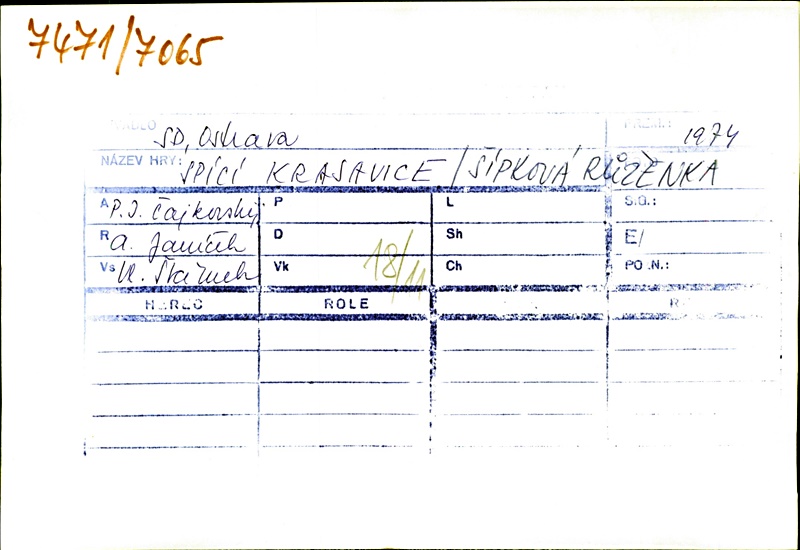 7471/7065
DIVADLO SD, Ostrava PREM.: 1974
NÁZEV HRY: SPÍCÍ KRASAVICE / ŠÍPKOVÁ RŮŽENKA
A P. I. Čajkovský P L S.O.:
R A. Janíček D Sh E/
Vs Vl. Šrámek Vk 18/11 Ch PO.N.:
HEREC ROLE